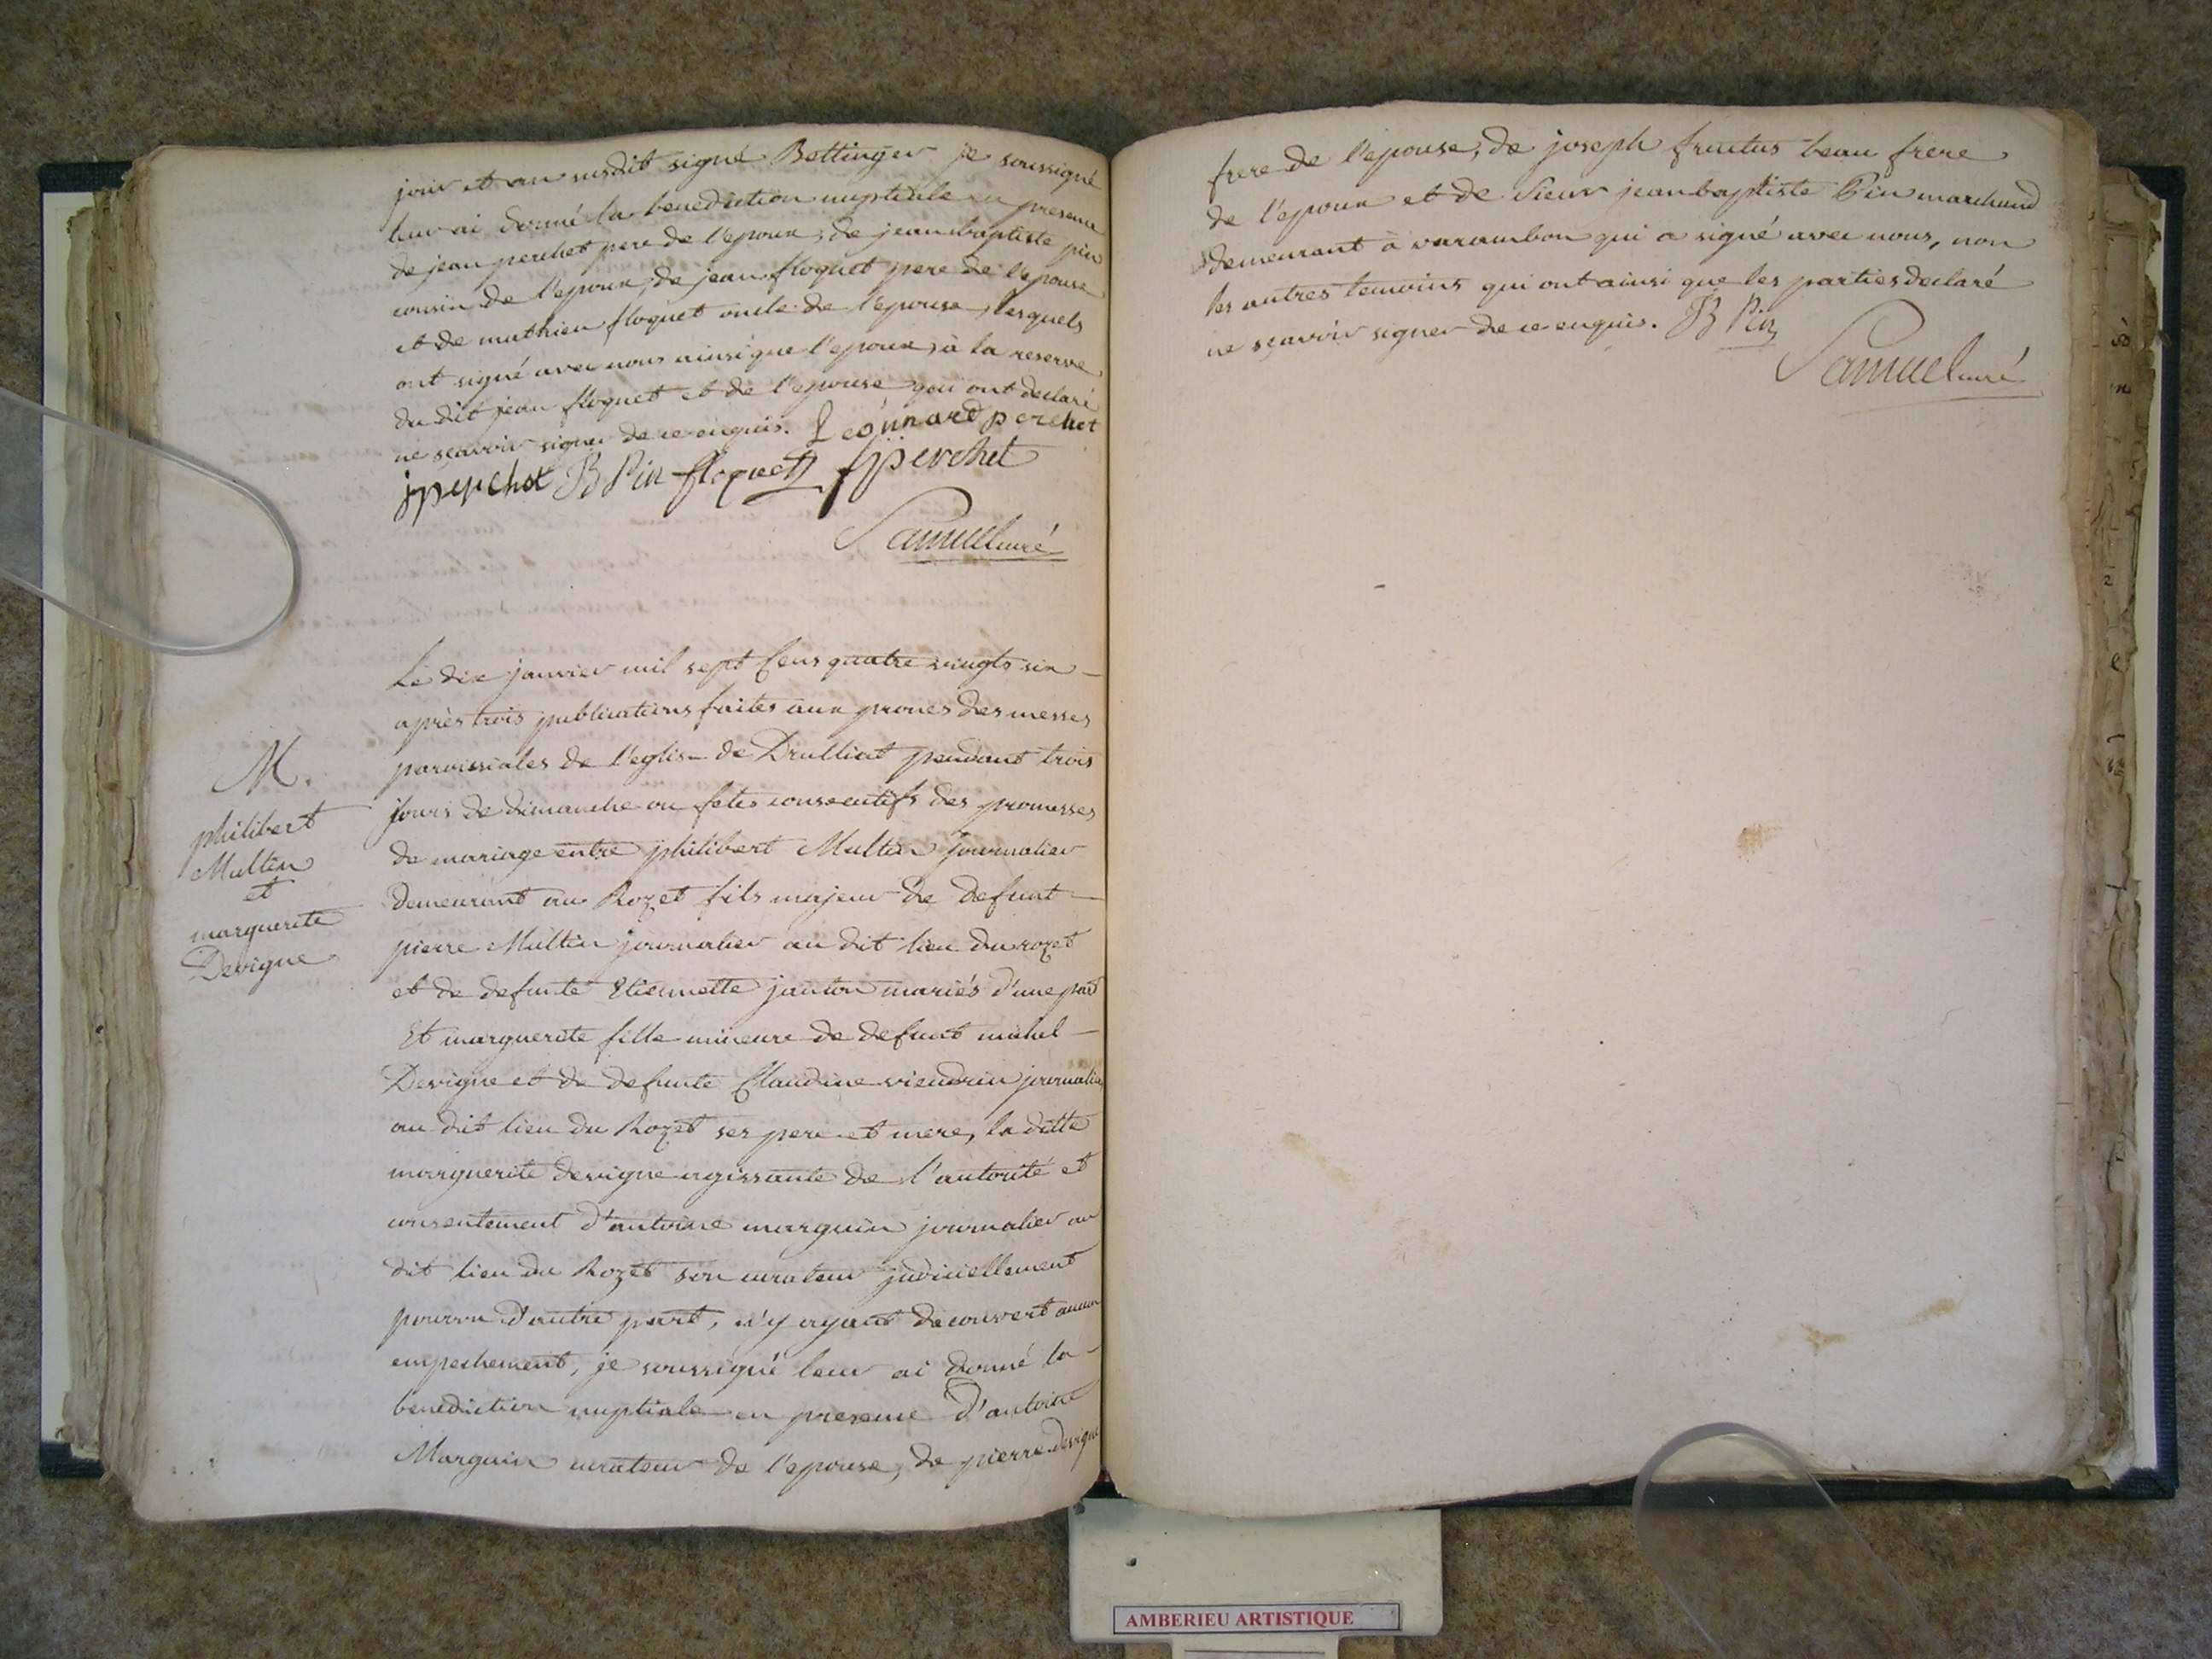 jour et an susdit signé Bottinger je soussigné
leur ai donné la benediction nuptiale en presence
de jean perchet pere de l'epoux, de jean baptiste pin
cousin de l'epoux, de jean floquet pere de l'epouse
et de mathieu floquet oncle de l'epouse, lesquels
ont signé avec nous ainsi que l'epoux, à la reserve
du dit jean floquet et de l'epouse qui ont declaré
ne sçavoir signer de ce enquis. Leonnard perchet
jperchet B Pin floquet perchet
Samuel curé
Le dix janvier mil sept Cens quatre vingts six
après trois publications faites aux prones des messes
paroissiales de l'eglise de Druilliat pendant trois
jours de dimanche ou fetes consecutifs des promesses
de mariage entre philibert Multin journalier
demeurant au Rozet fils majeur de defunt
pierre Multin journalier au dit lieu du rozet
et de defunte Etiennette janton mariés d'une part
Et marguerite fille mineure de defunt michel
Devigne et de defunte Claudine viendrin journaliers
au dit lieu du Rozet ses pere et mere, la ditte
marguerite devigne agissante de l'autorité et
consentement d'antoine marguin journalier au
dit lieu du Rozet son curateur judiciellement
pourvu d'autre part, n'y ayant decouvert aucun
empechement, je soussigné leur ai donné la
benediction nuptiale en presence d'antoine
Marguin curateur de l'epouse, de pierre devigne
M.
philibert
Multin
et
marguerite
Devigne
frere de l'epouse, de joseph fruitus beau frere
de l'epoux et de Sieur jean baptiste Pin marchand
demeurant à varambon qui a signé avec nous, non
les autres temoins qui ont ainsi que les parties declaré
ne sçavoir signer de ce enquis. B Pin
Samuel curé
AMBERIEU ARTISTIQUE